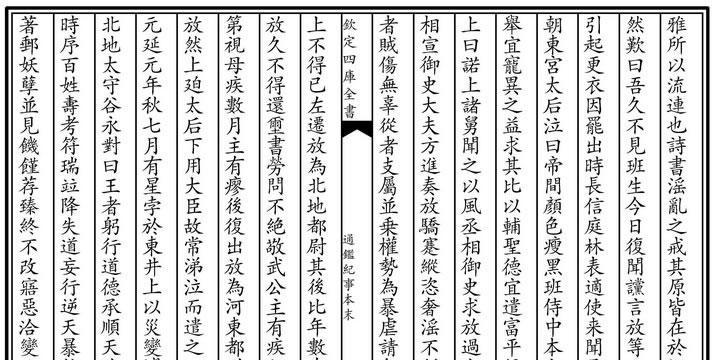 雅所以流連也詩書淫亂之戒其原皆在於
然歎曰吾久不見班生今日復聞讜言放等
引起更衣因罷出時長信庭林表適使來聞
朝東宮太后泣曰帝間顏色瘦黑班侍中本
舉宜寵異之益求其比以輔聖德宜遣富平
上曰諾上諸舅聞之以風丞相御史求放過
相宣御史大夫方進奏放驕蹇縱恣奢淫不
者賊傷無辜從者支屬並乗權勢為暴虐請
欽定四庫全書
通鑑紀事本末
上不得已左遷放為北地都尉其後比年數
放久不得還璽書勞問不絶敬武公主有疾
第視母疾數月主有瘳後復出放為河東都
放然上迫太后下用大臣故常涕泣而遣之
元延元年秋七月有星孛於東井上以災變
北地太守谷永對曰王者躬行道德承順天
時序百姓壽考符瑞竝降失道妄行逆天暴
著郵妖孽並見饑饉荐臻終不改寤惡洽變